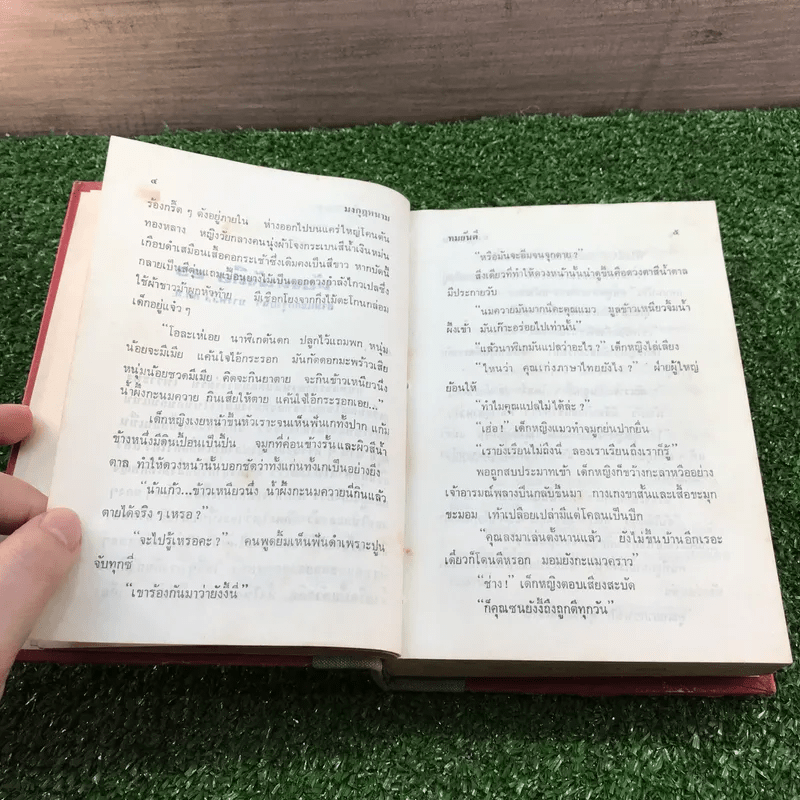 ๔
มงกุฎหนาม
ร้องกรี๊ด ๆ ดังอยู่ภายใน ห่างออกไปบนแคร่ใหญ่โคนต้น
ทองหลาง หญิงวัยกลางคนนุ่งผ้าโจงกระเบนสีน้ำเงินหม่น
เกือบดำเสมือนเสื้อคอกระเช้าซึ่งเดิมคงเป็นสีขาว หากบัดนี้
กลายเป็นสีตุ่นแถมเปื้อนยางไม้เป็นดอกดวงกำลังไกวเปลซึ่ง
ใช้ผ้าขาวม้าผูกหัวท้าย มีเชือกโยงจากกิ่งไม้ตะโกนกล่อม
เด็กอยู่แจ้ว ๆ
“โอละเห่เอย นาพิเกต้นดก ปลูกไว้แถมพก หนุ่ม
น้อยจะมีเมีย แค้นใจไอ้กระรอก มันกัดดอกมะพร้าวเสีย
หนุ่มน้อยชวดมีเมีย คิดจะกินยาตาย จะกินข้าวเหนียวนึ่ง
น้ำผึ้งกะนมควาย กินเสียให้ตาย แค้นใจไอ้กระรอกเอย...”
เด็กหญิงเงยหน้าขึ้นหัวเราะจนเห็นฟันเกทั้งปาก แก้ม
ข้างหนึ่งมีดินเปื้อนเป็นปื้น จมูกที่ค่อนข้างรั้นและผิวสีน้ำ
ตาล ทำให้ดวงหน้านั้นบอกชัดว่าทั้งแก่นทั้งเกเป็นอย่างยิ่ง
“น้าแก้ว...ข้าวเหนียวนึ่ง น้ำผึ้งกะนมควายนี่กินแล้ว
ตายได้จริง ๆ เหรอ?”
“จะไปรู้เหรอคะ?” คนพูดยิ้มเห็นฟันดำเพราะปูน
จับทุกซี่
“เขาร้องกันมาว่ายังงี้นี่”
ทมยันตี
๕
“หรือมันจะลืมจนจุกตาย?”
สิ่งเดียวที่ทำให้ดวงหน้านั้นน่าดูขึ้นคือดวงตาสีน้ำตาล
มีประกายวับ
“นมควายมันมากน๊ะคุณแมว มูลข้าวเหนียวจิ้มน้ำ
ผึ้งเข้า มันเก๊าะอร่อยไปเท่านั้น”
“แล้วนาพิเกมันแปลว่าอะไร?” เด็กหญิงไล่เลียง
“ไหนว่า คุณเก่งภาษาไทยยังไง?” ฝ่ายผู้ใหญ่
ย้อนให้
“ทำไมคุณแปลไม่ได้ล่ะ?”
“เฮ่อ!” เด็กหญิงแมวทำจมูกย่นปากยื่น
“เรายังเรียนไม่ถึงนี่ ลองเราเรียนถึงเราก็รู้”
พอถูกสบประมาทเข้า เด็กหญิงก็ขว้างกะลาหวืออย่าง
เจ้าอารมณ์พลางปีนกลับขึ้นมา กางเกงขาสั้นและเสื้อขะมุก
ขะมอม เท้าเปลือยเปล่ามีแต่โคลนเป็นปึก
“คุณลงมาเล่นตั้งนานแล้ว ยังไม่ขึ้นบ้านอีกเรอะ
เดี๋ยวก็โดนตีหรอก มอมยังกะแมวคราว”
“ช่าง!” เด็กหญิงตอบเสียงสะบัด
“ก็คุณซนยังงี้ถึงถูกตีทุกวัน”